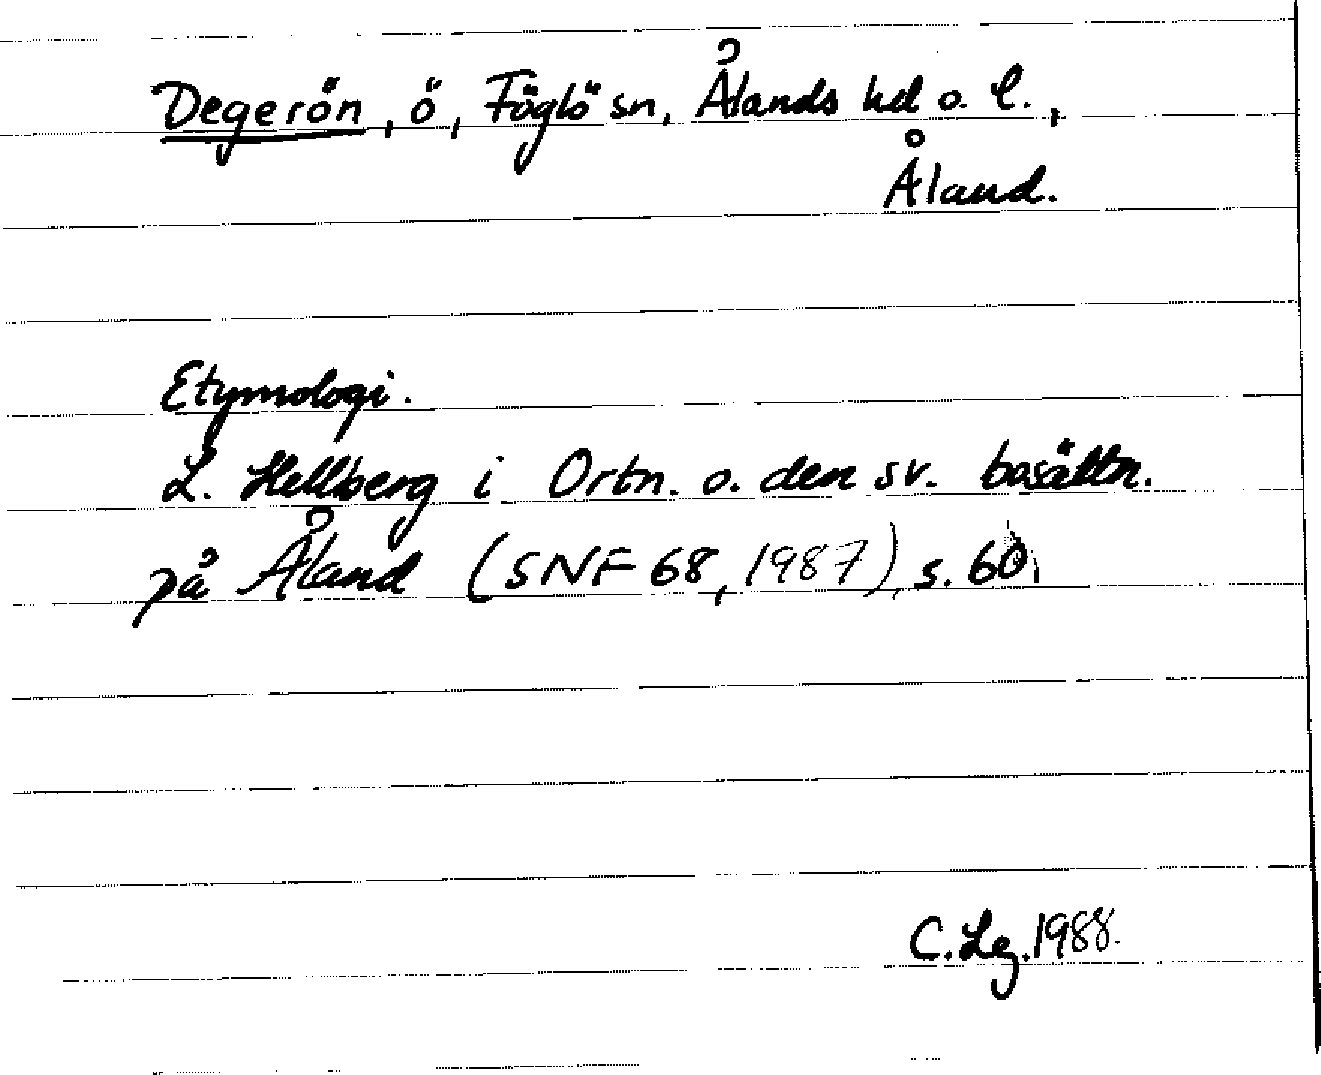 Degerön, ö, Föglö sn, Ålands hd o. l.,
Åland.
Etymologi.
L. Hellberg i Ortn. o. den sv. bosättn.
på Åland (SNF 68, 1987), s. 60.
C. Lg. 1988.